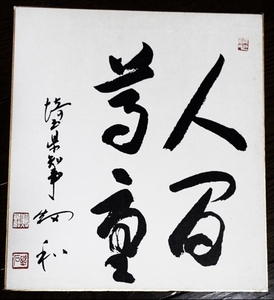 人間
尊重
埼玉県知事 和